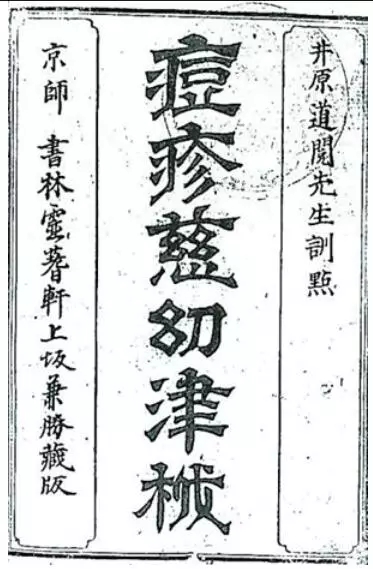 井原道閲先生訓點
痘疹慈幼津栰
京師 書林靈蓍軒上坂兼勝藏版